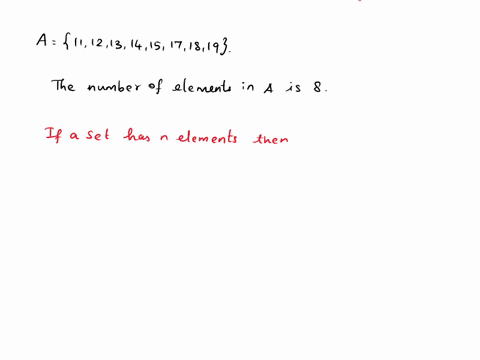 A = {11, 12, 13, 14, 15, 17, 18, 19}.
The number of elements in A is 8.
If a set has n elements then